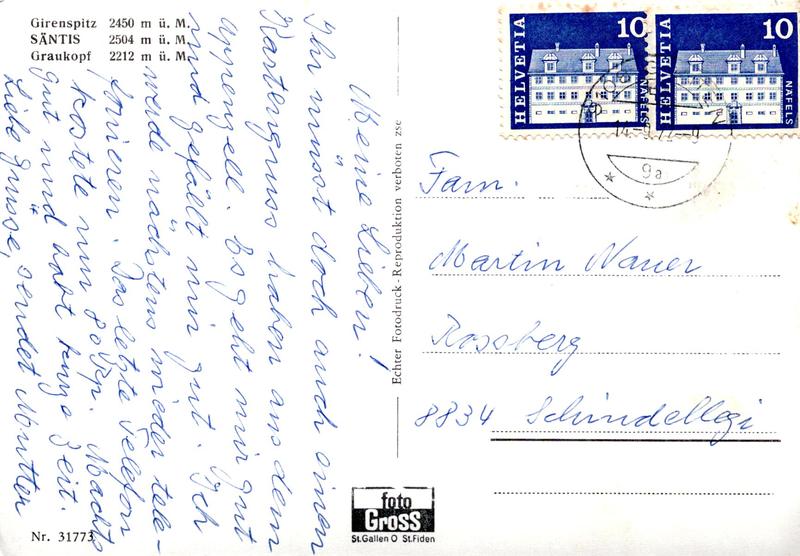 Girenspitz 2450 m ü. M.
SÄNTIS 2504 m ü. M.
Graukopf 2212 m ü. M.
Meine Lieben!
Ihr müsst doch auch einen
Kartengruss haben aus dem
Appenzell. Es geht mir gut
und gefällt mir gut. Ich
werde nächstens wieder tele-
fonieren. Das letzte Telefon
kostete nur 80 Rp. Machts
gut und habt kurze Zeit.
Liebe Grüsse, sendet Mutter
Nr. 31773
Echter Fotodruck - Reproduktion verboten zse
foto
GROSS
St.Gallen O St.Fiden
HELVETIA 10 NÄFELS
HELVETIA 10 NÄFELS
9a
Fam.
Martin Nauer
Rossberg
8834 Schindellegi